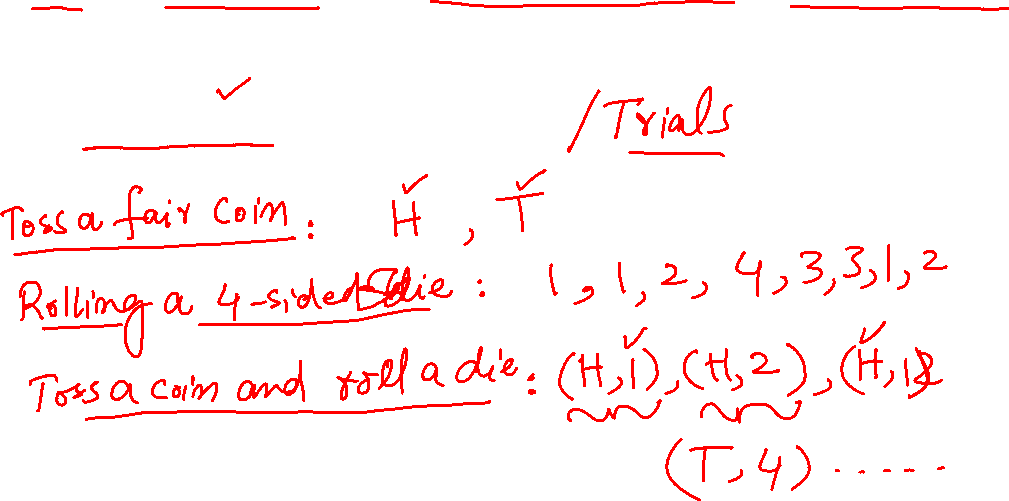 /Trials
Toss a fair coin: H, T
Rolling a 4-sided die: 1, 1, 2, 4, 3, 3, 1, 2
Toss a coin and roll a die: (H, 1), (H, 2), (H, 1)
(T, 4) ......